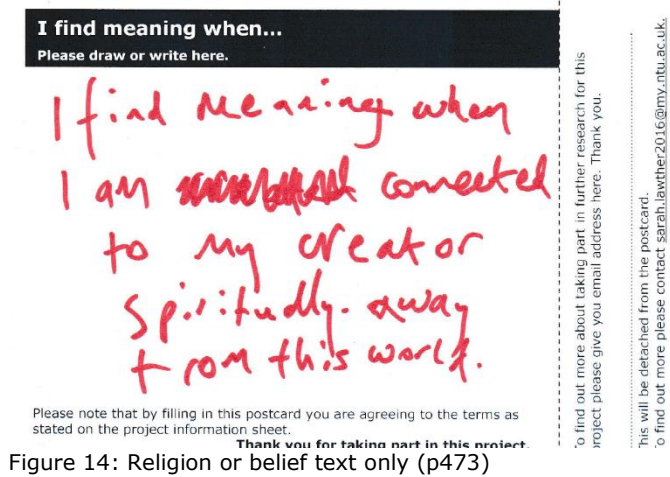 I find meaning when...
Please draw or write here.
I find meaning when
I am connected
to my creator
spiritually. away
from this world.
Please note that by filling in this postcard you are agreeing to the terms as
stated on the project information sheet.
Thank you for taking part in this project.
To find out more about taking part in further research for this
project please give you email address here. Thank you.
This will be detached from the postcard.
To find out more please contact sarah.lawther2016@my.ntu.ac.uk.
Figure 14: Religion or belief text only (p473)